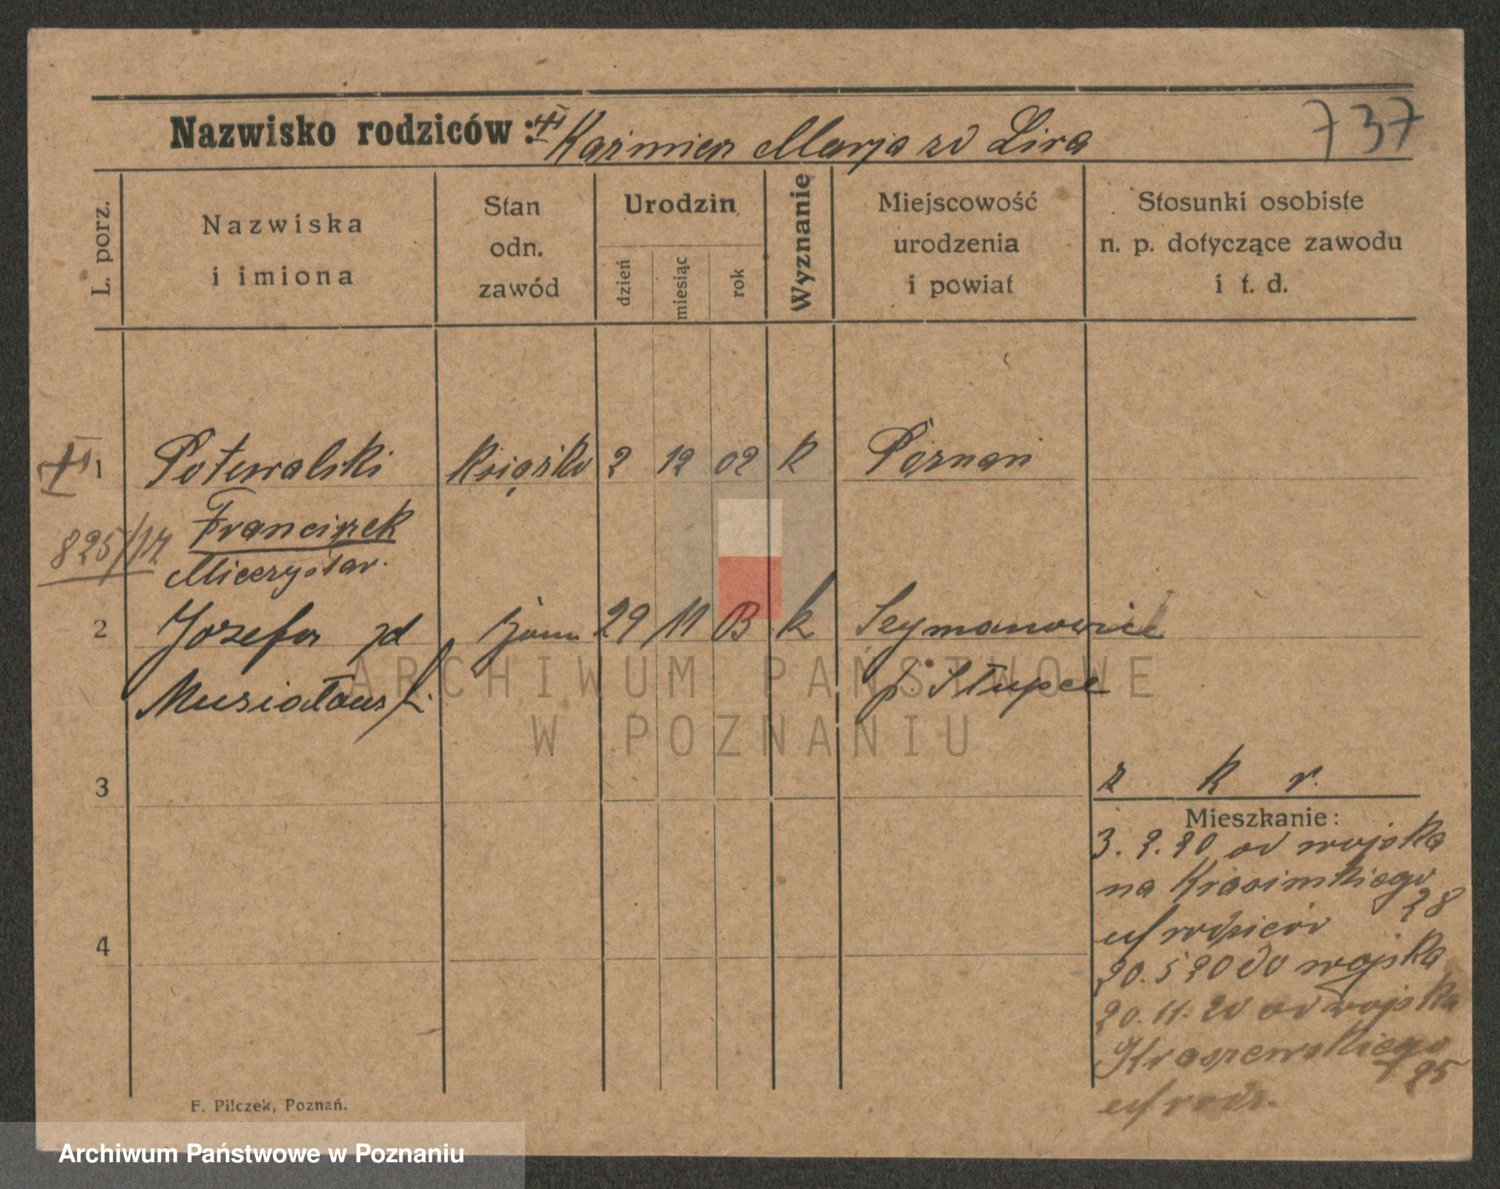 Nazwisko rodziców: Kaźmierz Marja zd Lira
737
L. porz.
Nazwiska i imiona
Stan odn. zawód
Urodzin
dzień
miesiąc
rok
Wyznanie
Miejscowość urodzenia i powiat
Stosunki osobiste n. p. dotyczące zawodu i t. d.
1 Poturalski 2 12 02 k Poznań
825/12 Franciszek
Mieczysław.
2 Józefa zd żona 29 11 03 k Szymanowice
p. Słupce
ARCHIWUM PAŃSTWOWE
W POZNANIU
z k r.
3
Mieszkanie:
3. 2. 20 od wojska
na Krasińskiego
28
u/rodziców
4
20. 5 20 do wojska
20. 11. 20 od wojska
Kraszewskiego
25
u/rodz.
F. Pilczek, Poznań.
Archiwum Państwowe w Poznaniu